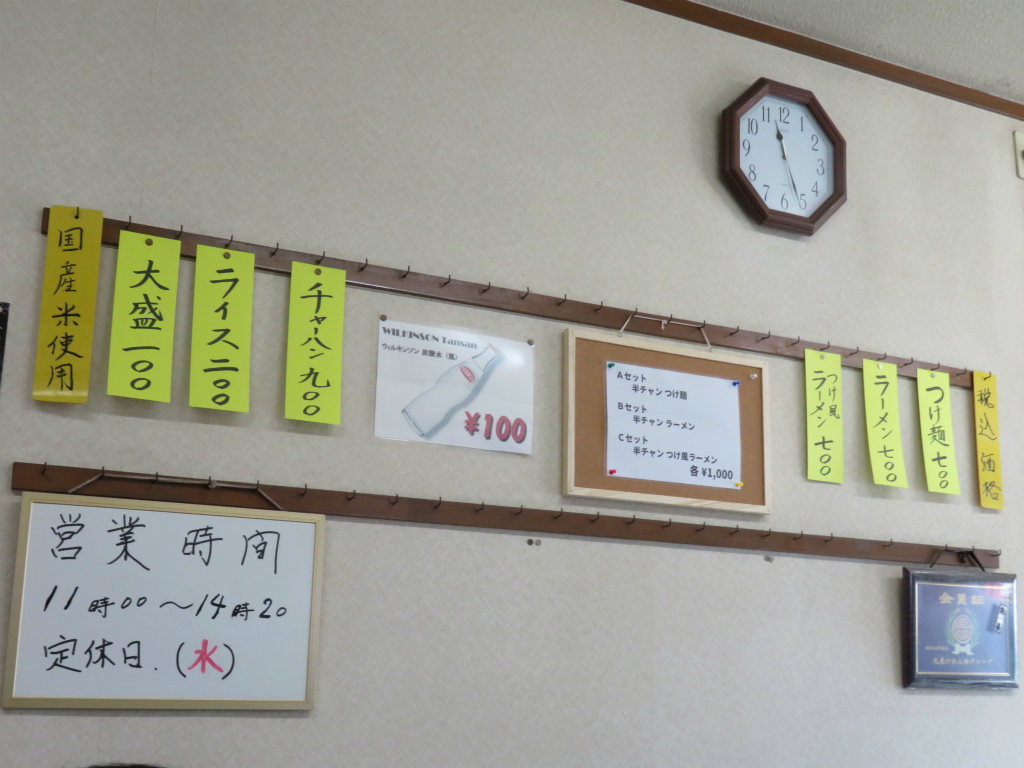 税込価格
つけ麺 七〇〇
ラーメン 七〇〇
つけ風
ラーメン 七〇〇
Aセット
半チャン つけ麺
Bセット
半チャン ラーメン
Cセット
半チャン つけ風ラーメン
各 ¥1,000
WILKINSON Tansan
ウィルキンソン 炭酸水（瓶）
¥100
チャーハン 九〇〇
ライス 二〇〇
大盛 一〇〇
国産米使用
12
1
2
3
4
5
6
7
8
9
10
11
営業時間
11時00～14時20
定休日.(水)
会員証